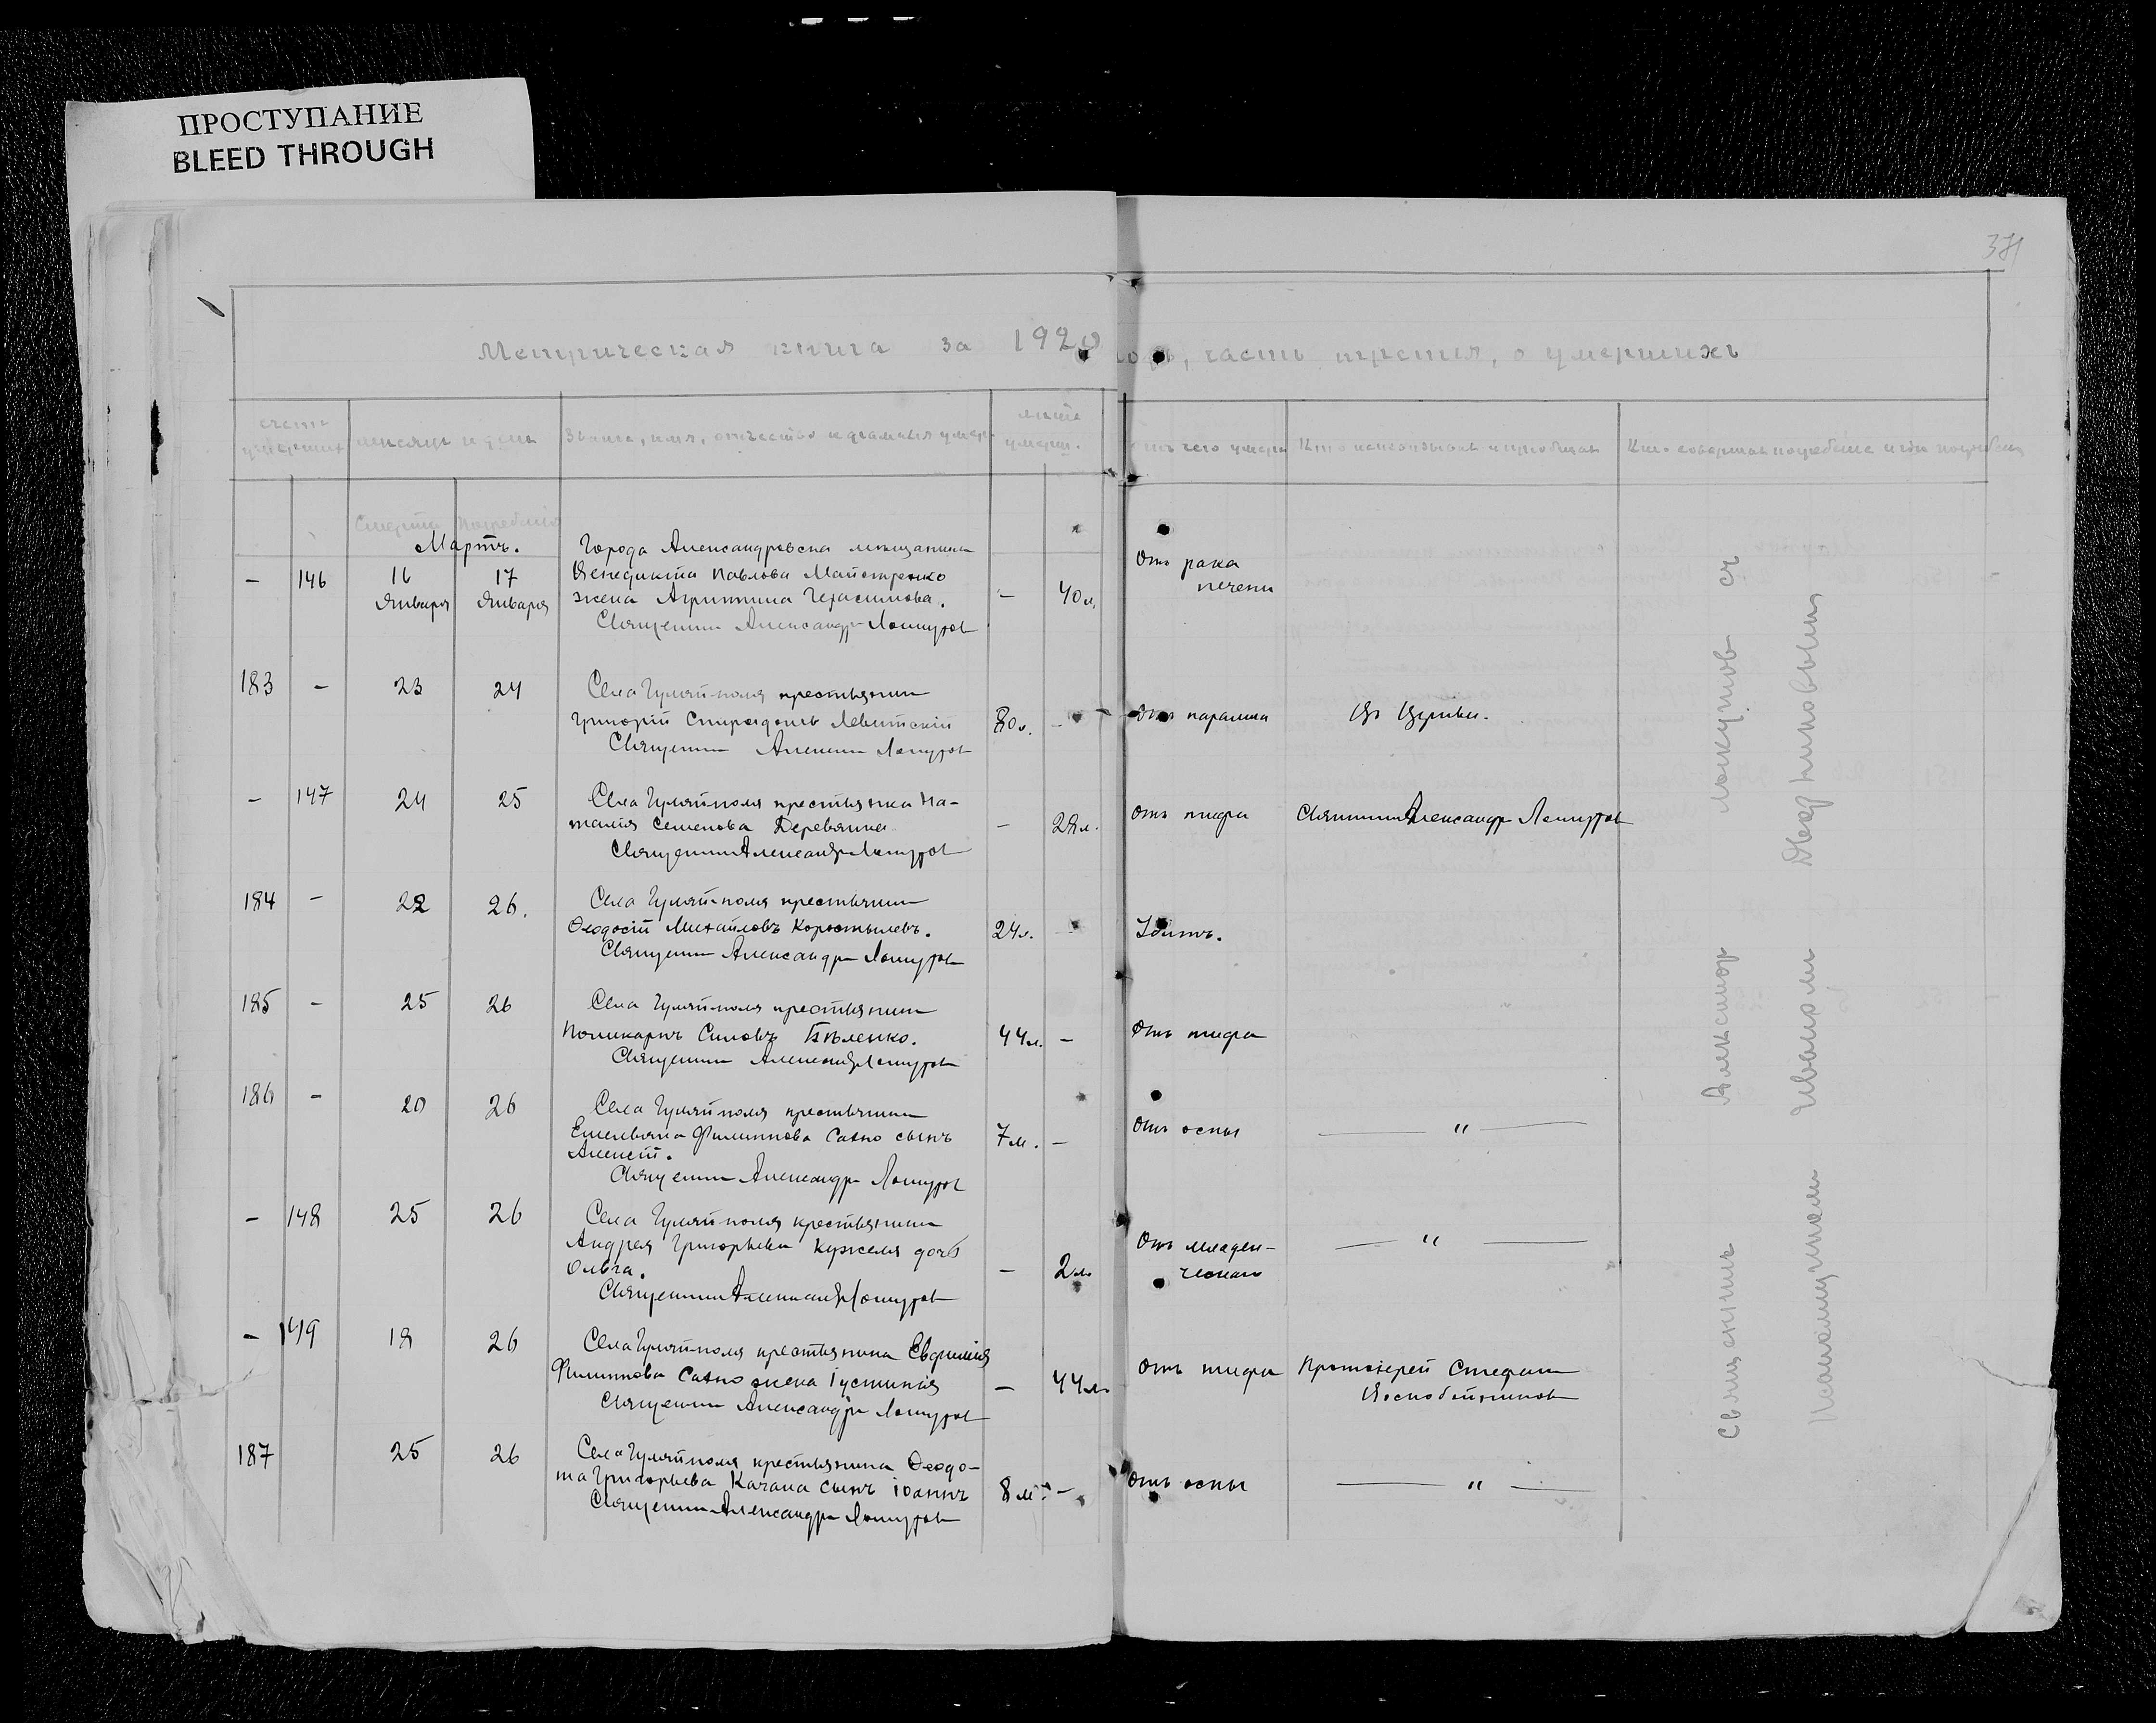 ПРОСТУПАНИЕ
BLEED THROUGH
371
Метрическая книга за 1920 годъ, часть третья, о умершихъ
счетъ умершихъ
месяцъ и день
Званіе, имя, отчество и фамилія умер.
лета умерш.
отъ чего умеръ
Кто исповѣдывалъ и пріобщалъ
Кто совершалъ погребеніе и где погребены
Смерти
Погребенія
Мартъ.
- 146 16 Января 17 Января
Города Александровска мещанина
Венедикта Павлова Майстренко
жена Агриппина Герасимова.
Священник Александр
- 40 л.
Отъ рака
печени
183 - 23 24
Села Гуляй-поля крестьянин
Григорій Спиридонов Левитскій
Священник
80 л. -
Отъ паралича
Въ Церкви.
- 147 24 25
Села Гуляйполя крестьянка На-
талія Семенова Деревянка
Священник Александр
- 28 л.
Отъ тифа
Священник Александр
184 - 22 26.
Села Гуляй-поля крестьянин
Феодосій Михайловъ Коростылевъ.
Священник Александр
24 л. -
Убитъ.
185 - 25 26
Села Гуляй-поля крестьянин
Поликарпъ Силовъ Бѣленко.
Священник
44 л. -
Отъ тифа
186 - 20 26
Села Гуляйполя крестьянина
Емельяна Филиппова Сахно сынъ
Алексѣй.
Священник Александр
7 м. -
Отъ оспы
— " —
- 148 25 26
Села Гуляйполя крестьянина
Андрея Григорьева Кужеля дочь
Ольга.
Священник
- 2 м.
Отъ младен-
ческой
— " —
- 149 18 26
Села Гуляйполя крестьянина Евфимія
Филиппова Сахно жена Іустинія
Священник Александр
- 44 л.
Отъ тифа
Протоіерей Стефан
Воскобойников
187 25 26
Села Гуляйполя крестьянина Феодо-
та Григорьева Качана сынъ Іоаннъ
Священник Александр
8 м. -
Отъ оспы
— " —
Священникъ Александр съ
Иваном Дворниковымъ